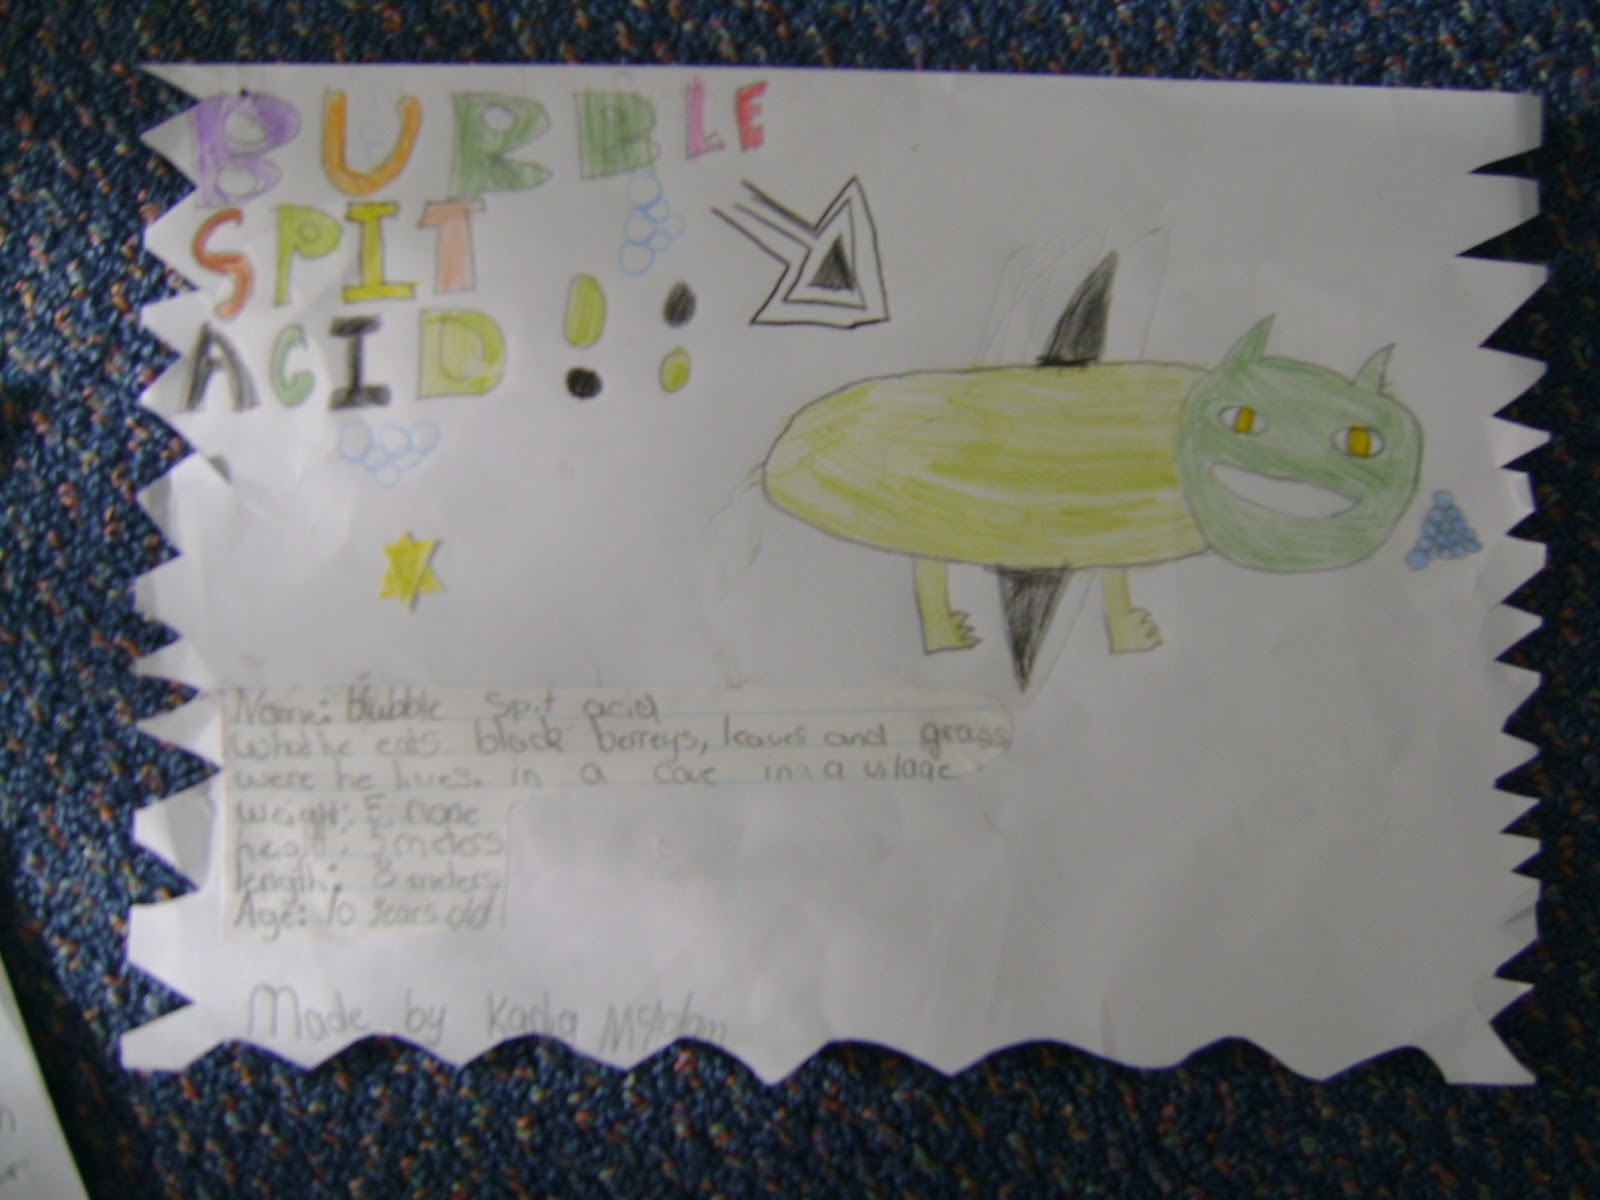 BURBBLE
SPIT
ACID!:
Name: blubble spit acid
What he eats black berreys, leaves and grass,
were he lives. in a cave in a vilage
Weight: 5 none
height: 5 meters
length: 8 meters
Age: 10 years old
Made by Kadia